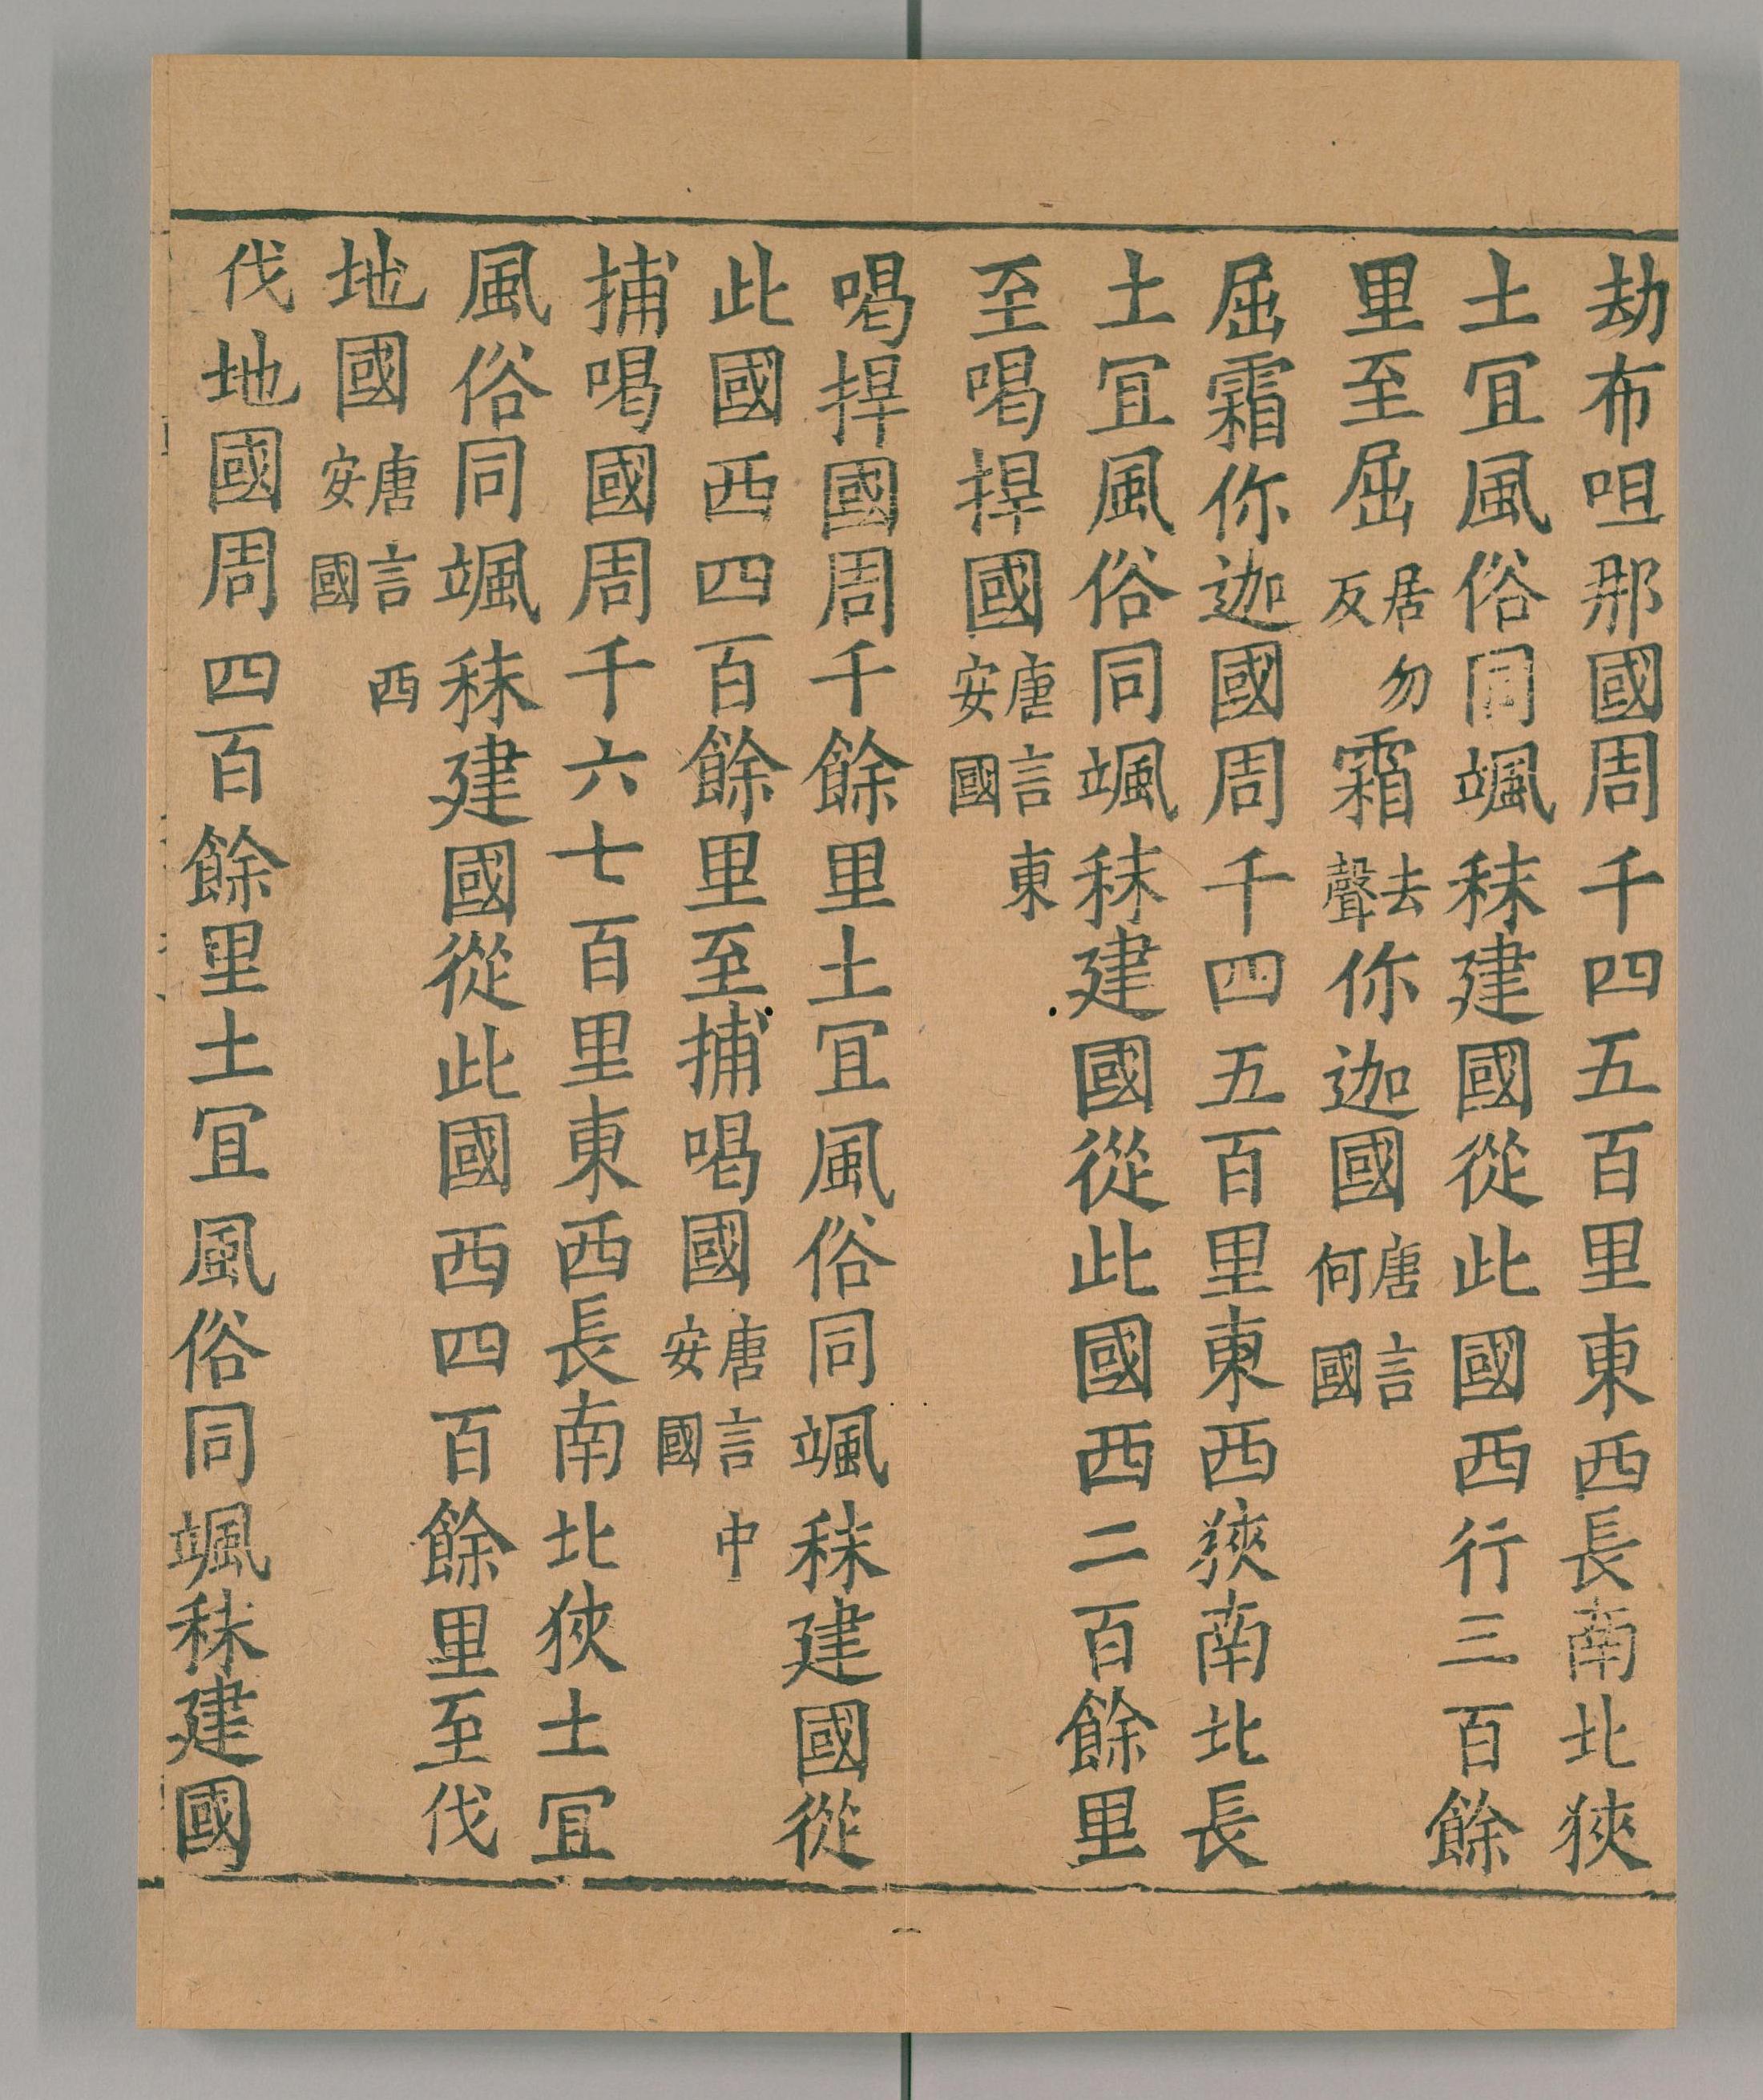 劫布呾那國周千四五百里東西長南北狹
土宜風俗同颯秣建國從此國西行三百餘
里至屈居勿反霜去聲你迦國唐言何國
屈霜你迦國周千四五百里東西狹南北長
土宜風俗同颯秣建國從此國西二百餘里
至喝捍國唐言東安國
喝捍國周千餘里土宜風俗同颯秣建國從
此國西四百餘里至捕喝國唐言中安國
捕喝國周千六七百里東西長南北狹土宜
風俗同颯秣建國從此國西四百餘里至伐
地國唐言西安國
伐地國周四百餘里土宜風俗同颯秣建國